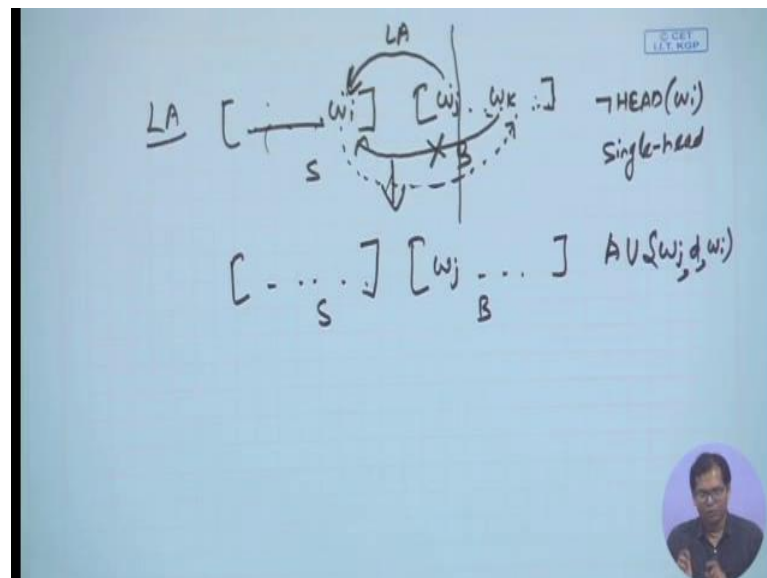 © CET
I.I.T. KGP
LA
LA [ wi ] [ wj . . wk . . ] ¬HEAD(wi)
A B Single-head
S
[ - . . . . ] [ wj - . . . ] A ∪ {wj, d, wi)
S B